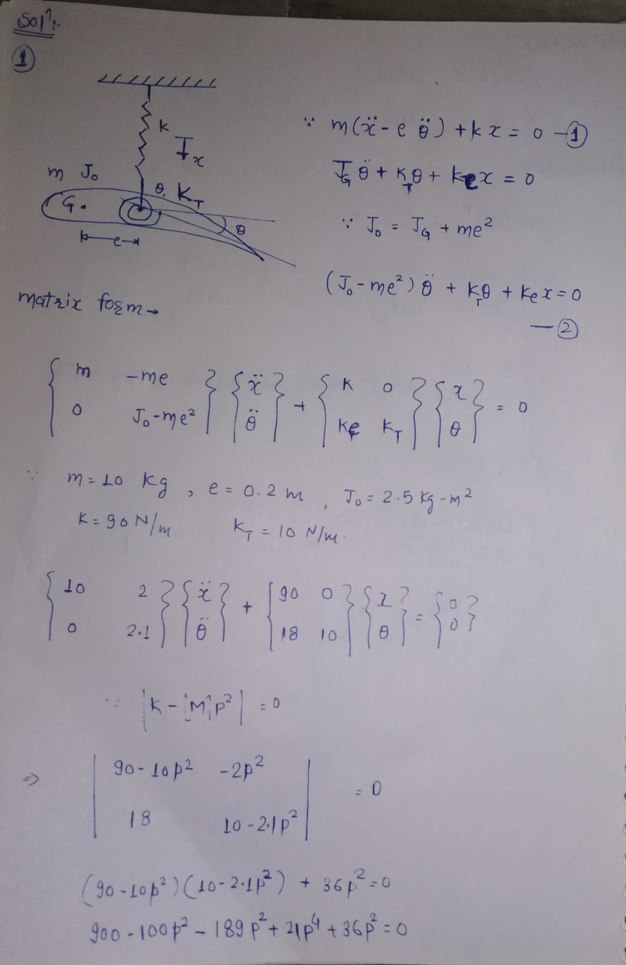 Solⁿ:-
①
k
x
m J₀
θ, K_T
G.
θ
e
∵ m(ẍ - e θ̈) + kx = 0 —①
J_G θ̈ + K_T θ + kex = 0
∵ J₀ = J_G + me²
(J₀-me²) θ̈ + K_T θ + kex = 0
—②
matrix form→
{ m -me
0 J₀-me² } { ẍ
θ̈ } + { K 0
ke K_T } { x
θ } = 0
∵ m = 10 kg , e = 0.2 m , J₀ = 2.5 kg-m²
K = 90 N/m K_T = 10 N/m.
{ 10 2
0 2.1 } { ẍ
θ̈ } + [ 90 0
18 10 } { x
θ } = { 0
0 }
∵ |K - [M]p²| = 0
⇒ | 90-10p² -2p²
18 10-2.1p² | = 0
(90-10p²)(10-2.1p²) + 36p² = 0
900-100p² - 189p² + 21p⁴ + 36p² = 0